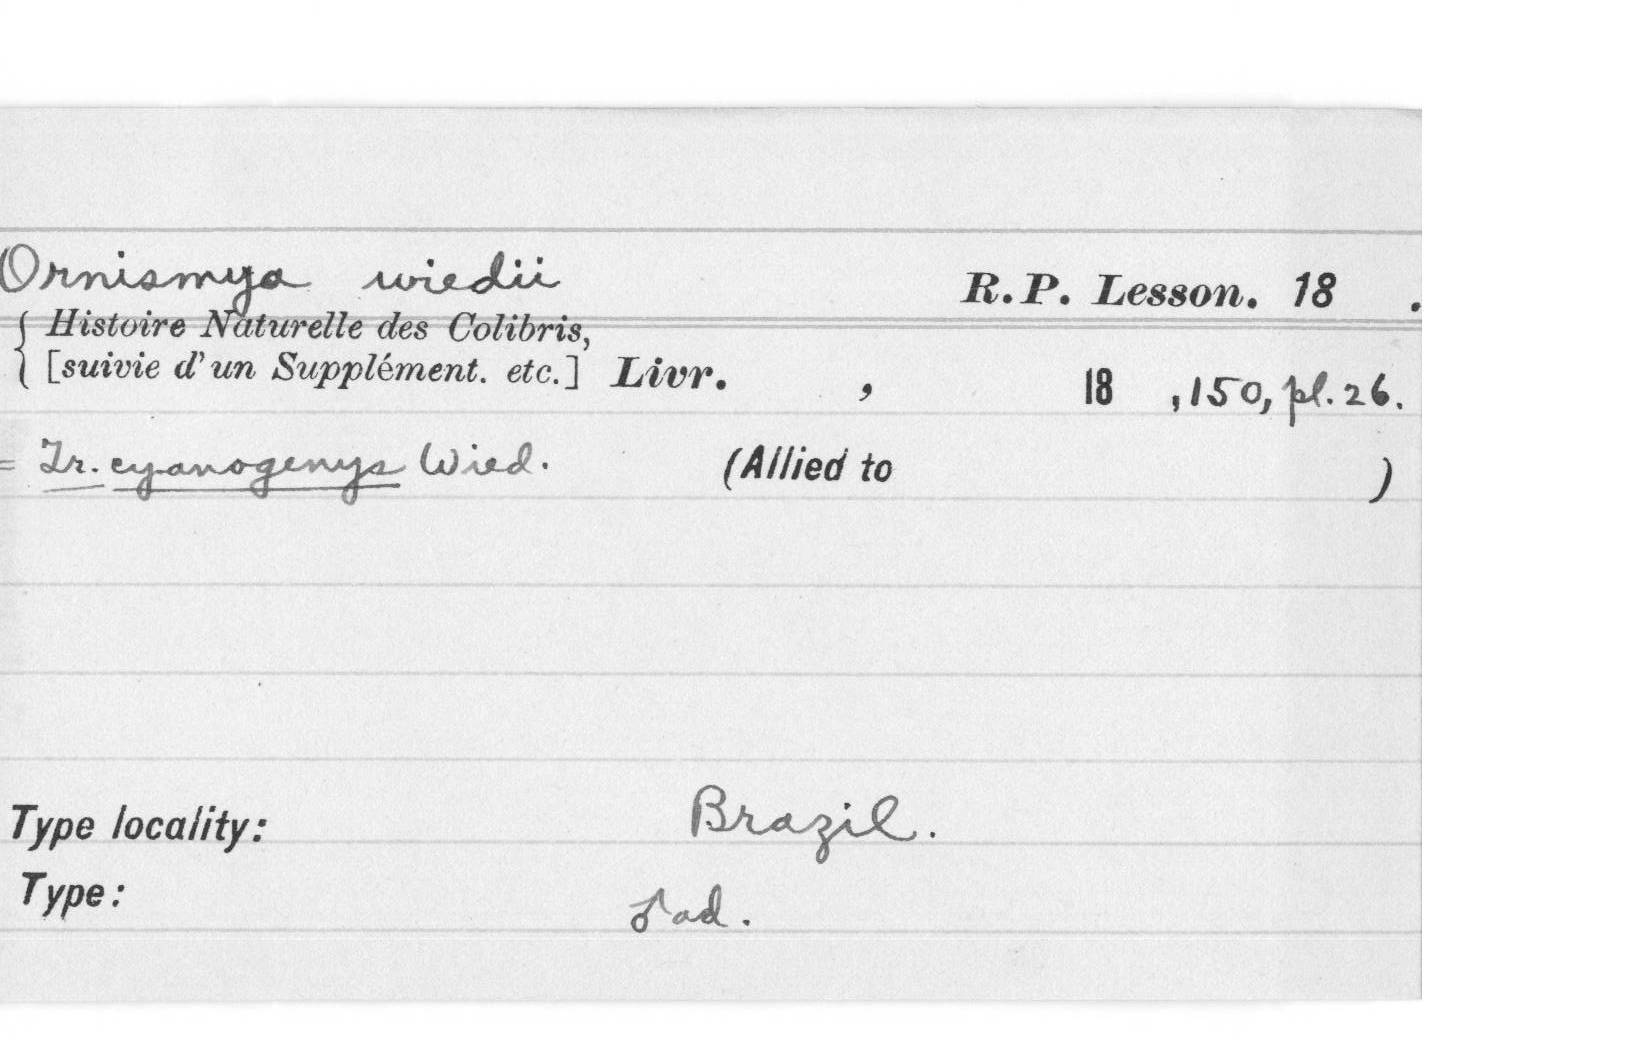 Ornismya wiedii R.P. Lesson. 18 .
{ Histoire Naturelle des Colibris,
[suivie d'un Supplément. etc.] Livr. , 18 , 150, pl. 26.
= Tr. cyanogenys Wied. (Allied to )
Type locality: Brazil.
Type: ♂ ad.